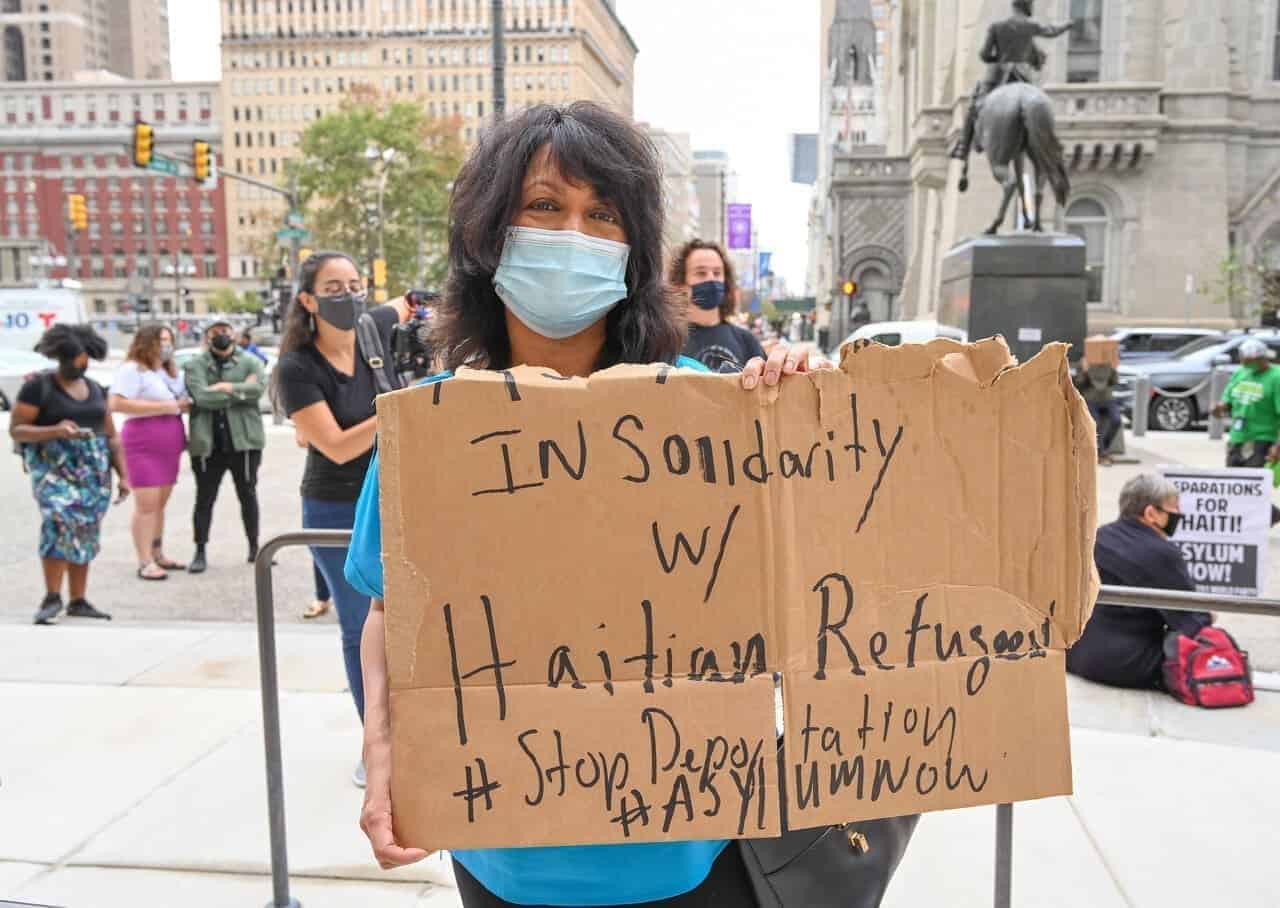 In Solidarity
w/
Haitian Refugees
#StopDeportation
#ASYLUMNOW
10
EPARATIONS
FOR
HAITI!
ASYLUM
NOW!
WORLD PARTY